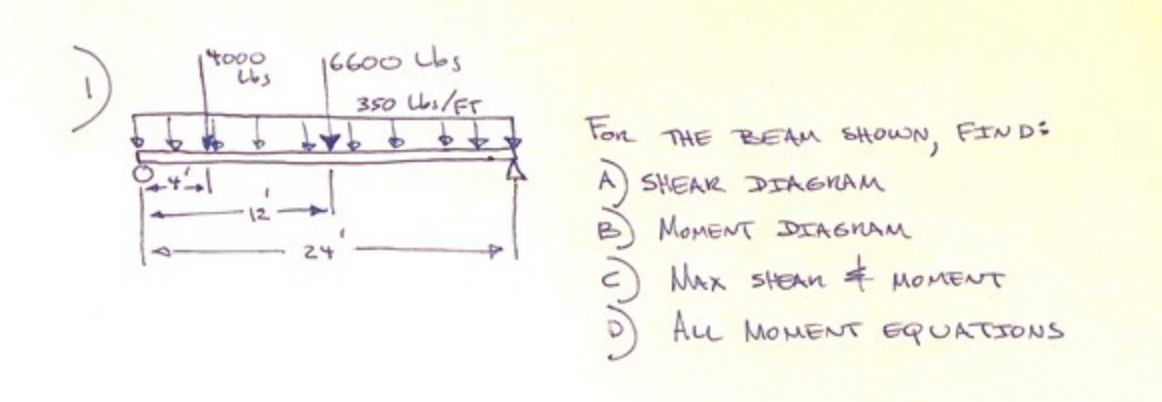 1)
4000
Lbs
6600 Lbs
350 Lbs/FT
4'
12'
24'
FOR THE BEAM SHOWN, FIND:
A) SHEAR DIAGRAM
B) MOMENT DIAGRAM
C) MAX SHEAR & MOMENT
D) ALL MOMENT EQUATIONS